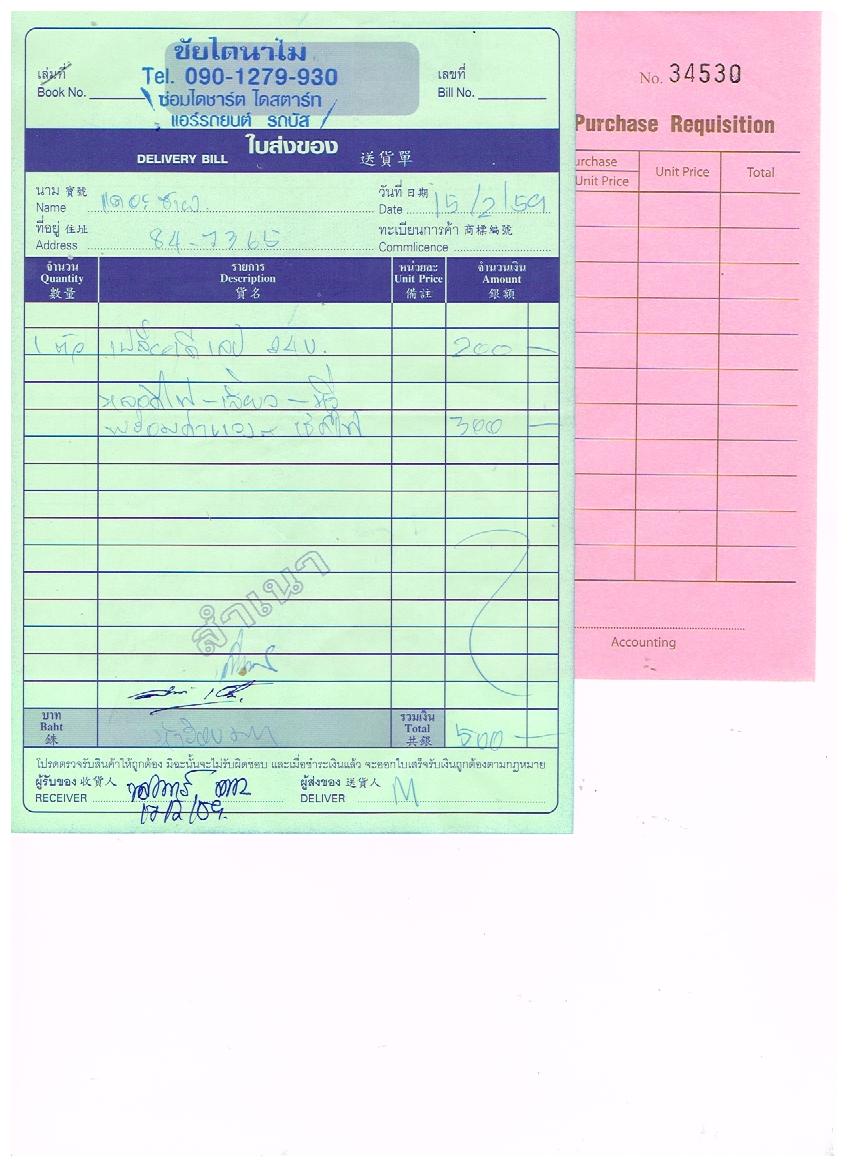 ชัยไดนาโม
Tel. 090-1279-930
ซ่อมไดชาร์ต ไดสตาร์ท
แอร์รถยนต์ รถบัส
เล่มที่
Book No.
เลขที่
Bill No.
ใบส่งของ
DELIVERY BILL 送貨單
นาม 寶號
Name
วันที่ 日期
Date 15/2/59
ที่อยู่ 住址
Address 84-7365
ทะเบียนการค้า 商標編號
Commlicence
จำนวน
Quantity
數量
รายการ
Description
貨名
หน่วยละ
Unit Price
備註
จำนวนเงิน
Amount
銀額
1 ตัว 24 V. 200 —
หลอดไฟ
300 —
สำเนา
บาท
Baht
銖
รวมเงิน
Total
共銀
500 —
โปรดตรวจรับสินค้าให้ถูกต้อง มิฉะนั้นจะไม่รับผิดชอบ และเมื่อชำระเงินแล้ว จะออกใบเสร็จรับเงินถูกต้องตามกฎหมาย
ผู้รับของ 收貨人
RECEIVER
ผู้ส่งของ 送貨人
DELIVER
No. 34530
Purchase Requisition
urchase
Unit Price
Unit Price
Total
Accounting